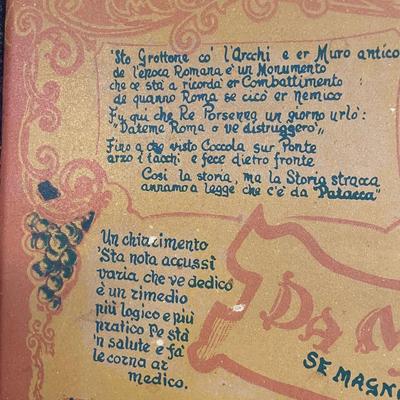 'Sto Grottone co' l'Archi e er Muro antico
de l'epoca Romana è un Monumento
che ce sta a ricordà er Combattimento
de quanno Roma se cicò er nemico
Fu qui che Re Porsenna un giorno urlò:
"Dateme Roma o ve distruggerò„
Fino a che visto Coccola sur Ponte
arzò i tacchi e fece dietro fronte
Cosi la storia, ma la Storia stracca
annamo a legge che c'è da "Patacca"
Un chiarimento
'Sta nota accussì
varia, che ve dedico
è un rimedio
più logico e più
pratico Pe stà
'n salute e fà
le corna ar
medico.
DA M
SE MAGN